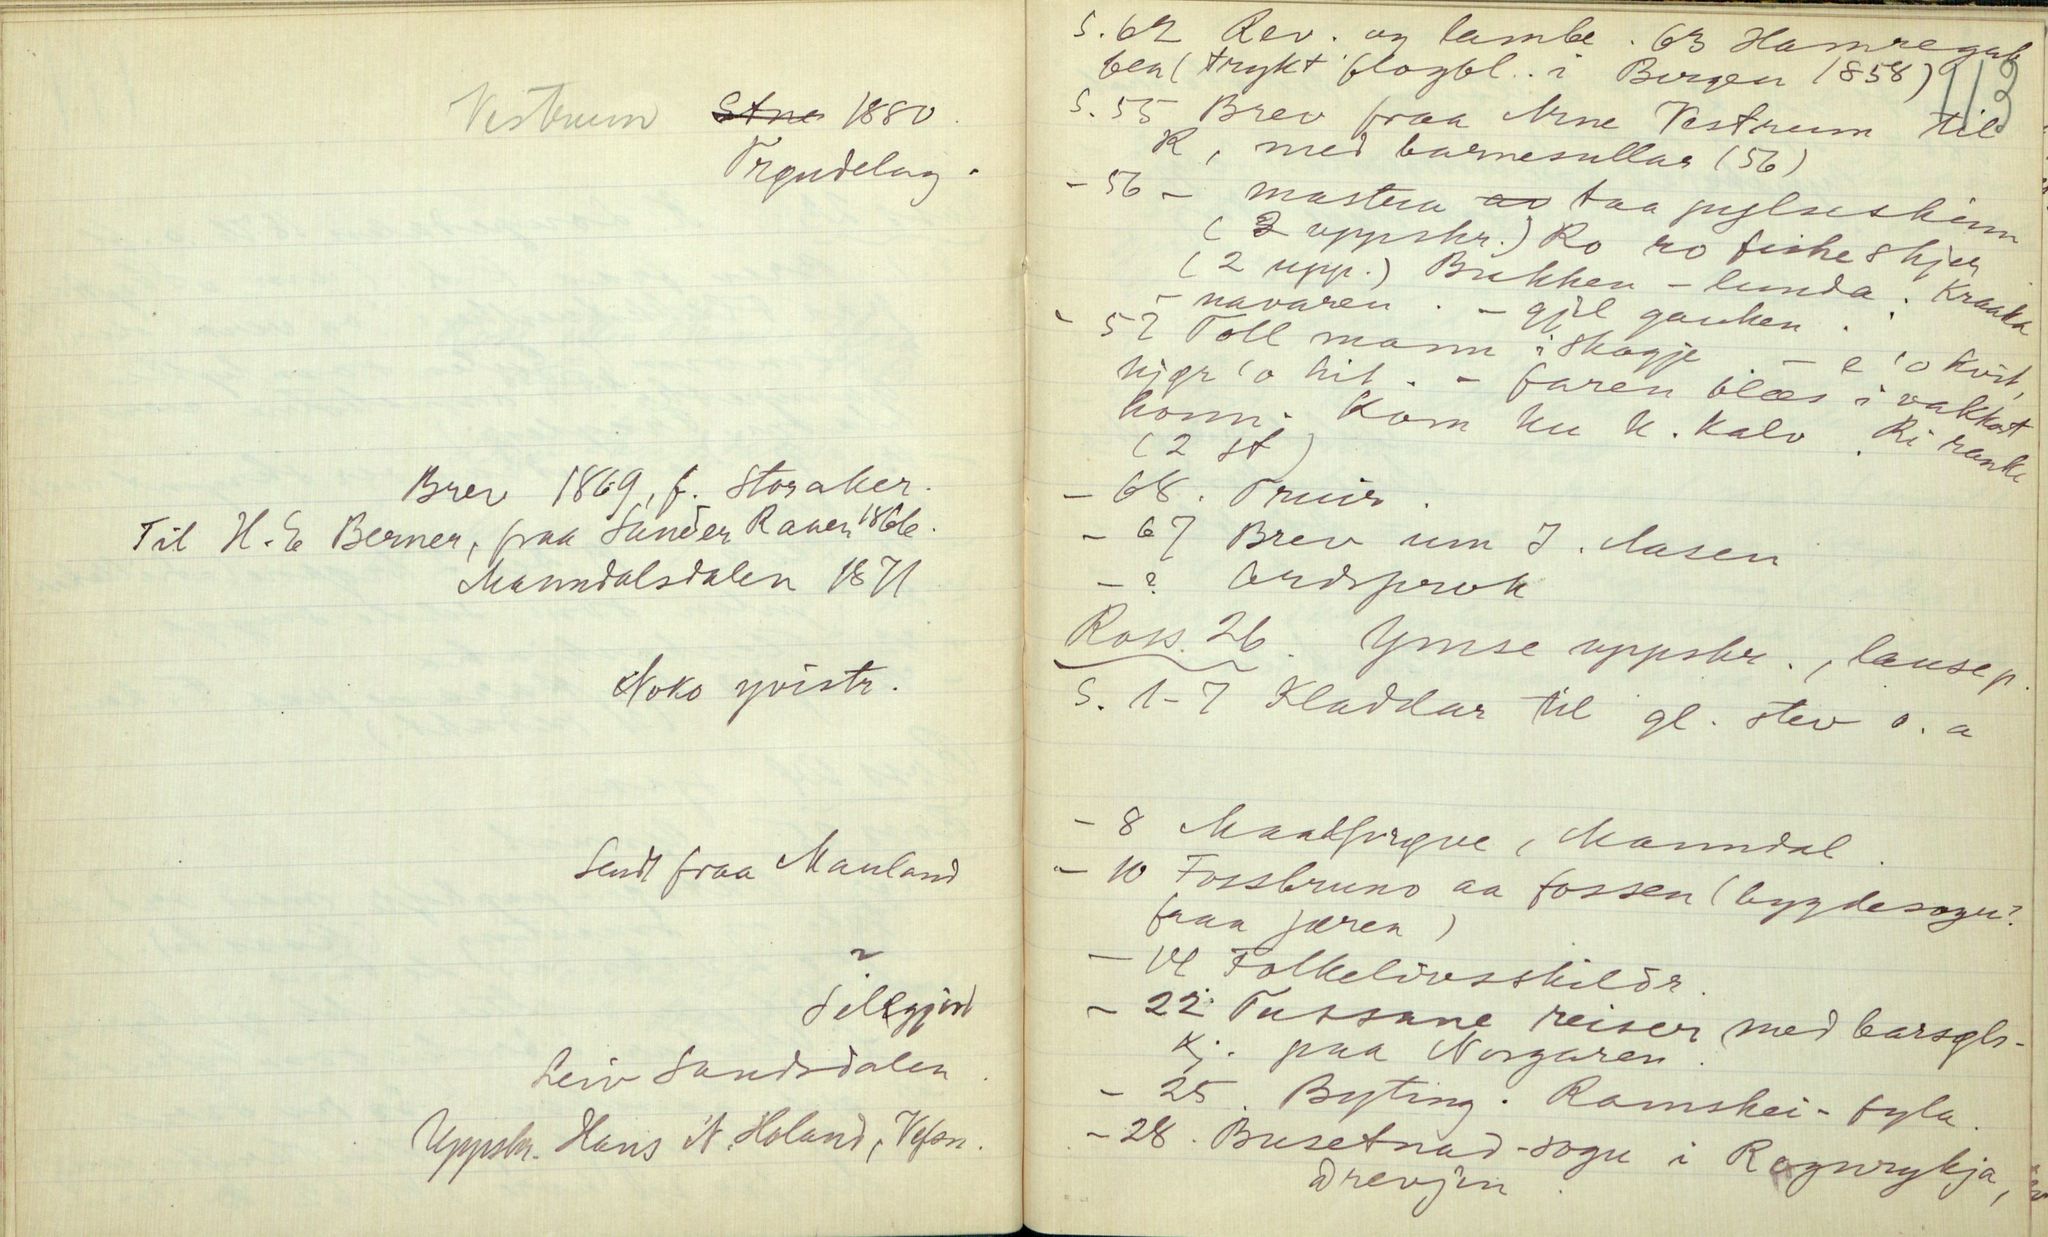 Vestrum Stne 1880.
Trøndelag.
Brev 1869, f. Storaker.
Til H. E Berner, fraa Sander Raaen 1866.
Manndalsdalen 1871
Noko yvistr.
Sendt fraa Mauland
Leiv Sandsdalen.
Uppskr. Hans N. Holand, Vefsn.
113
S. 62 Rev. og lambe. 63 Hamregub
ben (trykt flogbl. i Bergen 1858)
S. 55 Brev fraa Arne Vestrum til
K, med barnesullar (56)
- 56 - mastern av taa pylseskinn
(2 uppskr.) Ro ro fiskeskjer
(2 upp.) Bukken - lunda. Kraaka
- navaren. - gjil gauken.
- 57 Toll mann i skogje - e 'o kvit,
hjør 'o hit. - faren blæs i vakkert
honn. Kom ku k. kalv. Ri ranke
(2 st)
- 68. Truir.
- 67 Brev um I. Aasen
- ? Ordsprok
Ross. 26. Ymse uppskr., lause p.
S. 1-7 Kladdar til gl. stev o. a
- 8 Maalførque, Manndal.
- 10 Fossbruno aa fossen (bygdesogn?
fraa Jæren)
- 14 Folkelivsskildr.
- 22 Tussane reiser med barsøls-
kj. paa Norgaren.
- 25. Byting. Ramskei-fyla.
- 28. Busetnad-sogu i
Drevjin.